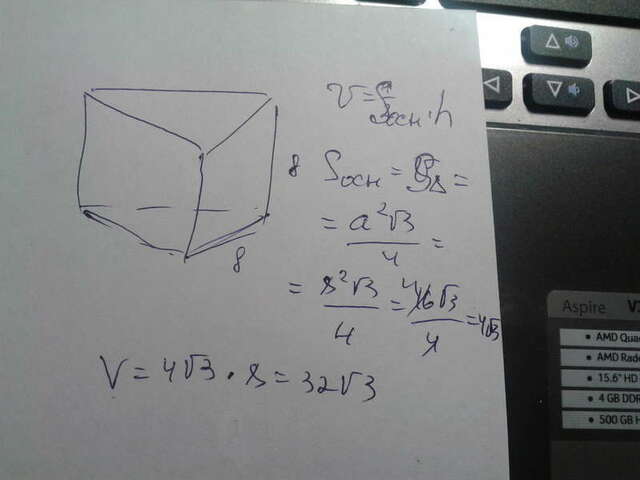 V = Sосн · h
8
Sосн = S△ =
= a²√3/4 =
8
= 8²√3/4 = 16√3/4 = 4√3
V = 4√3 · 8 = 32√3
Aspire V
• AMD Quad
• AMD Rade
• 15.6" HD
• 4 GB DDR
• 500 GB H